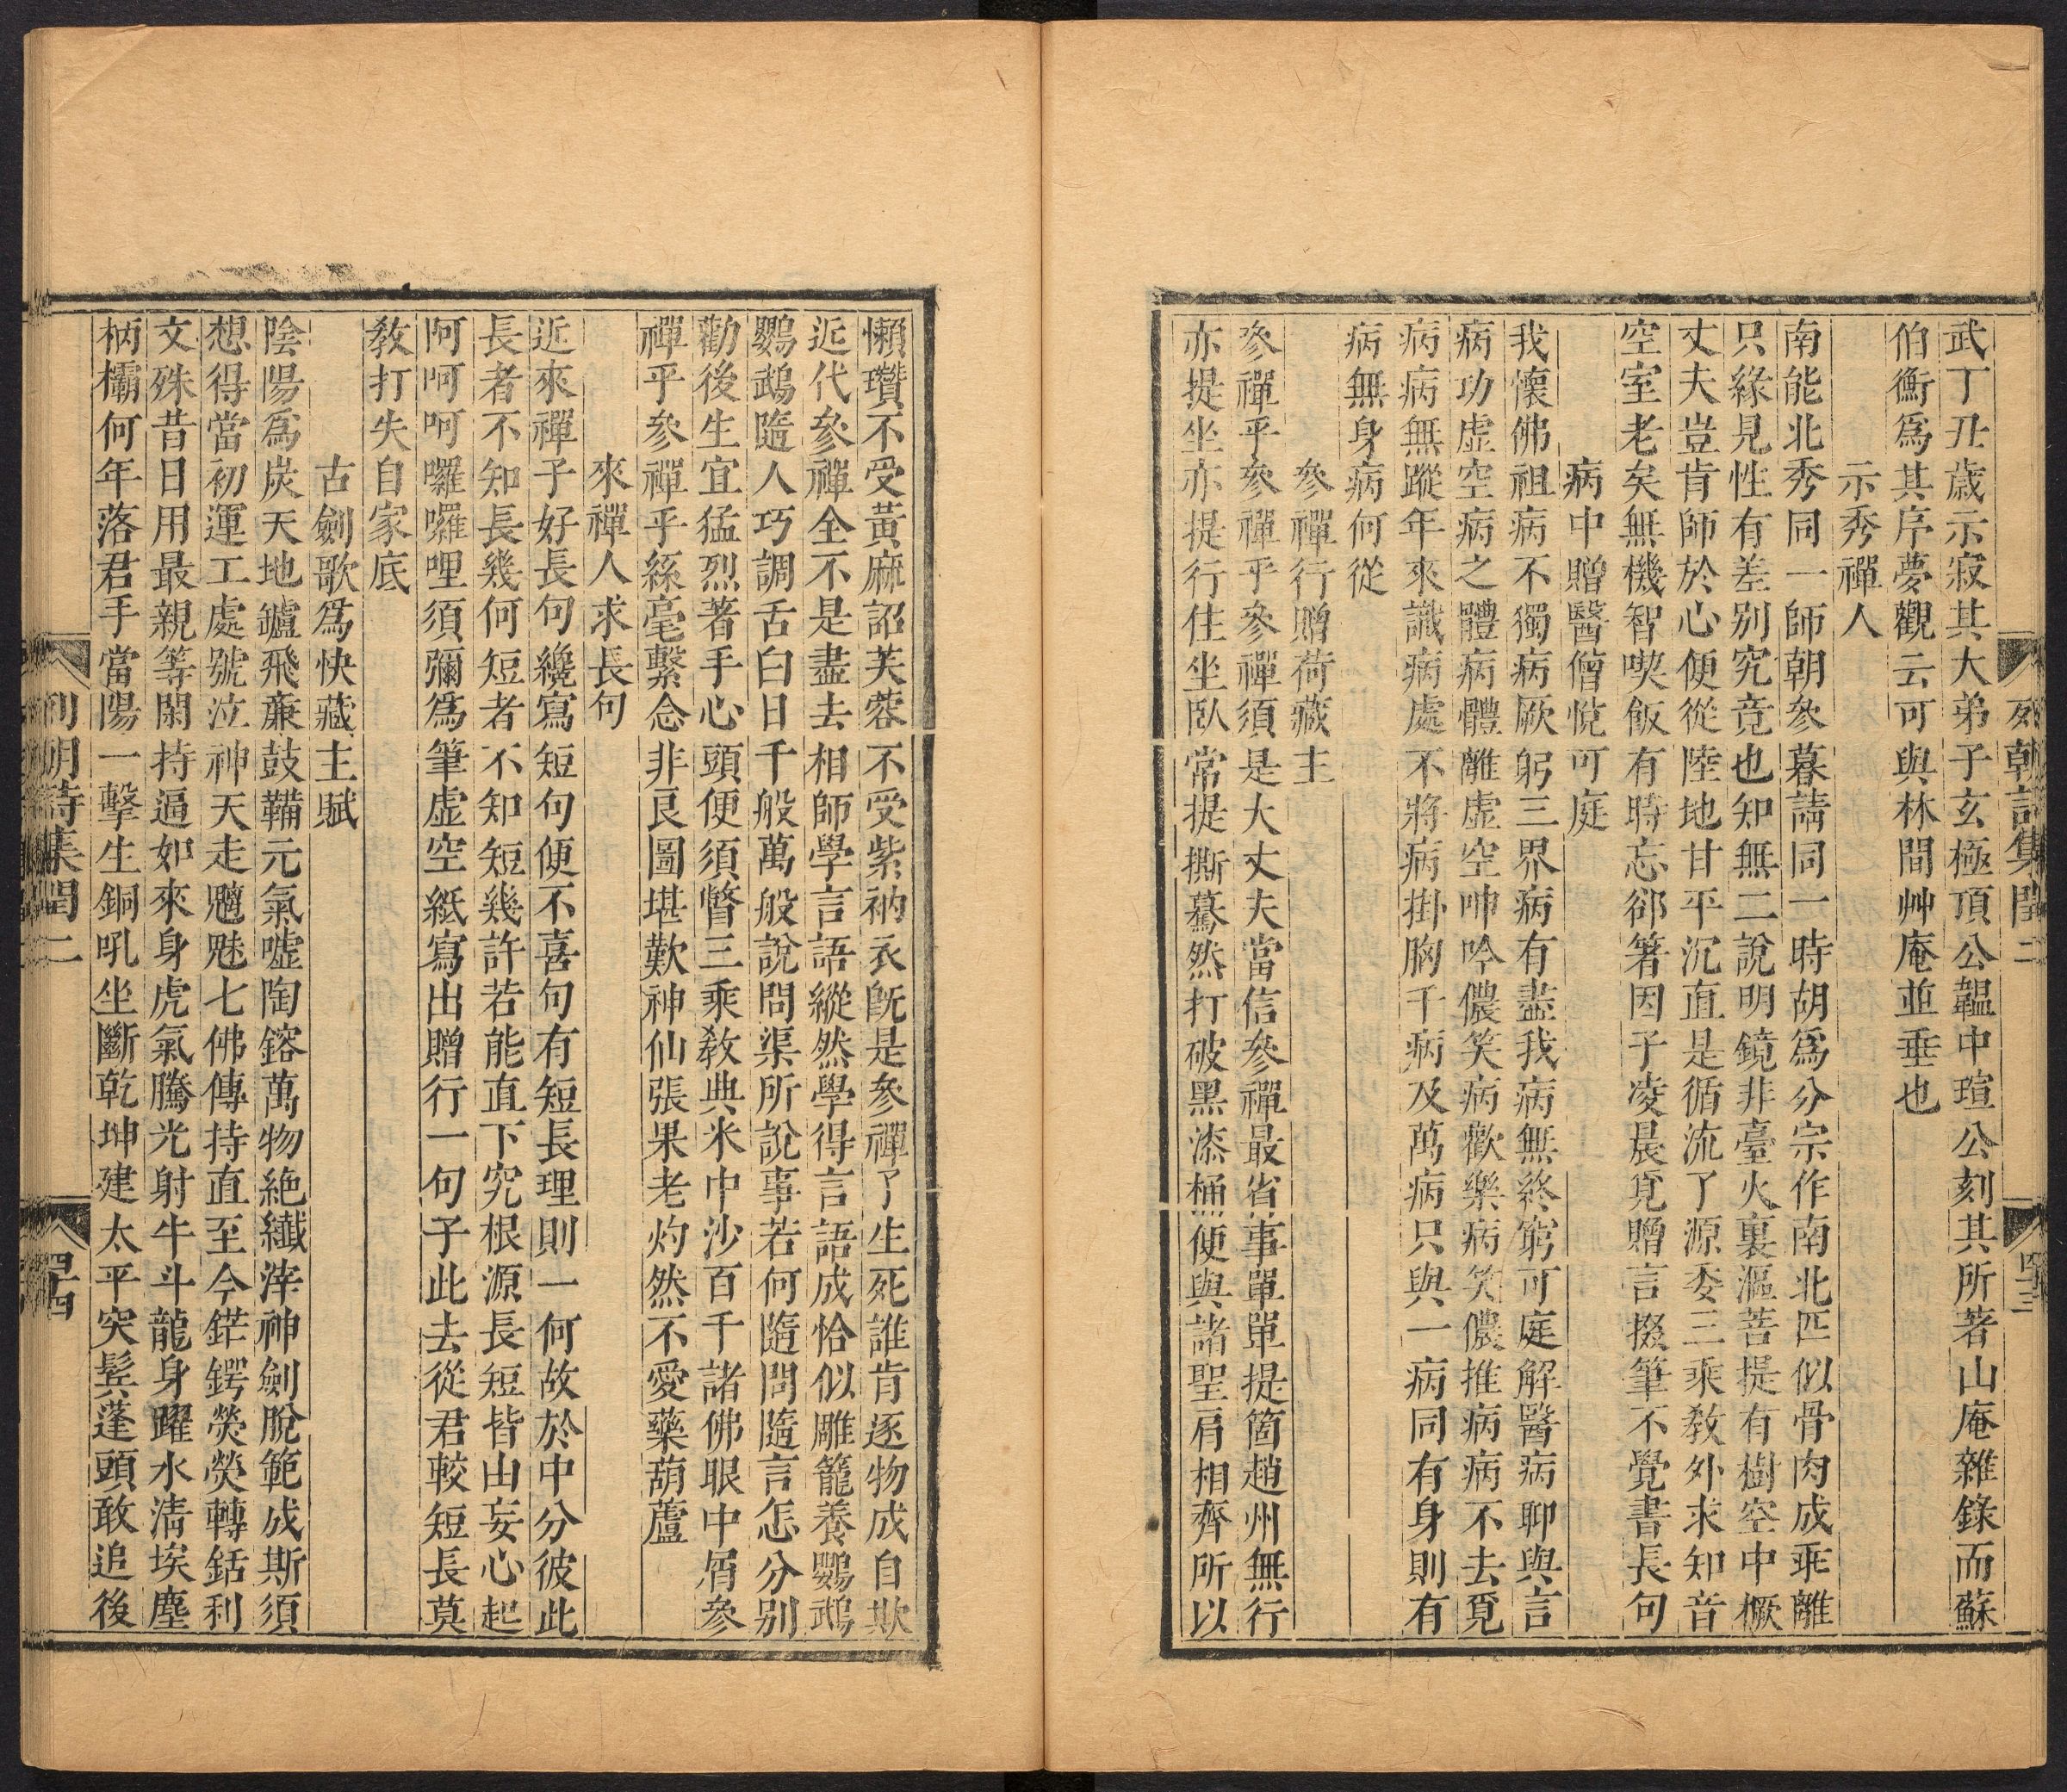 武丁丑歲示寂其大弟子玄極頂公韞中瑄公刻其所著山庵雜錄而蘇
伯衡爲其序夢觀云可與林間艸庵並垂也
示秀禪人
南能北秀同一師朝參暮請同一時胡爲分宗作南北匹似骨肉成乖離
只緣見性有差别究竟也知無二說明鏡非臺火裏漚菩提有樹空中橛
丈夫豈肯師於心便從陸地甘平沉直是循流了源委三乘教外求知音
空室老矣無機智喫飯有時忘郤箸因子凌晨覔贈言掇筆不覺書長句
病中贈醫僧悅可庭
我懷佛祖病不獨病厥躬三界病有盡我病無終窮可庭解醫病聊與言
病功虛空病之體病體離虛空呻吟儂笑病歡樂病笑儂推病病不去覓
病病無蹤年來識病處不將病掛胸千病及萬病只與一病同有身則有
病無身病何從
參禪行贈荷藏主
參禪乎參禪乎參禪須是大丈夫當信參禪最省事單單提箇趙州無行
亦提坐亦提行住坐臥常提撕驀然打破黑漆桶便與諸聖肩相齊所以
懶瓚不受黃麻詔芙蓉不受紫衲衣旣是參禪了生死誰肯逐物成自欺
近代參禪全不是盡去相師學言語縱然學得言語成恰似雕籠養鸚鵡
鸚鵡隨人巧調舌白日千般萬般說問渠所說事若何隨問隨言怎分别
勸後生宜猛烈著手心頭便須瞥三乘教典米中沙百千諸佛眼中屑參
禪乎參禪乎絲毫繫念非良圖堪歎神仙張果老灼然不愛藥葫蘆
來禪人求長句
近來禪子好長句纔寫短句便不喜句有短長理則一何故於中分彼此
長者不知長幾何短者不知短幾許若能直下究根源長短皆由妄心起
阿呵呵囉囉哩須彌爲筆虛空紙寫出贈行一句子此去從君較短長莫
教打失自家底
古劍歌爲快藏主賦
陰陽爲炭天地鑪飛廉鼓鞴元氣噓陶鎔萬物絶纖滓神劍脫範成斯須
想得當初運工處號泣神天走魑魅七佛傳持直至今鋩鍔熒熒轉銛利
文殊昔日用最親等閑持逼如來身虎氣騰光射牛斗龍身躍水淸埃塵
柄欛何年落君手當陽一擊生銅吼坐斷乾坤建太平突鬢蓬頭敢追後
列朝詩集閏二
四十四